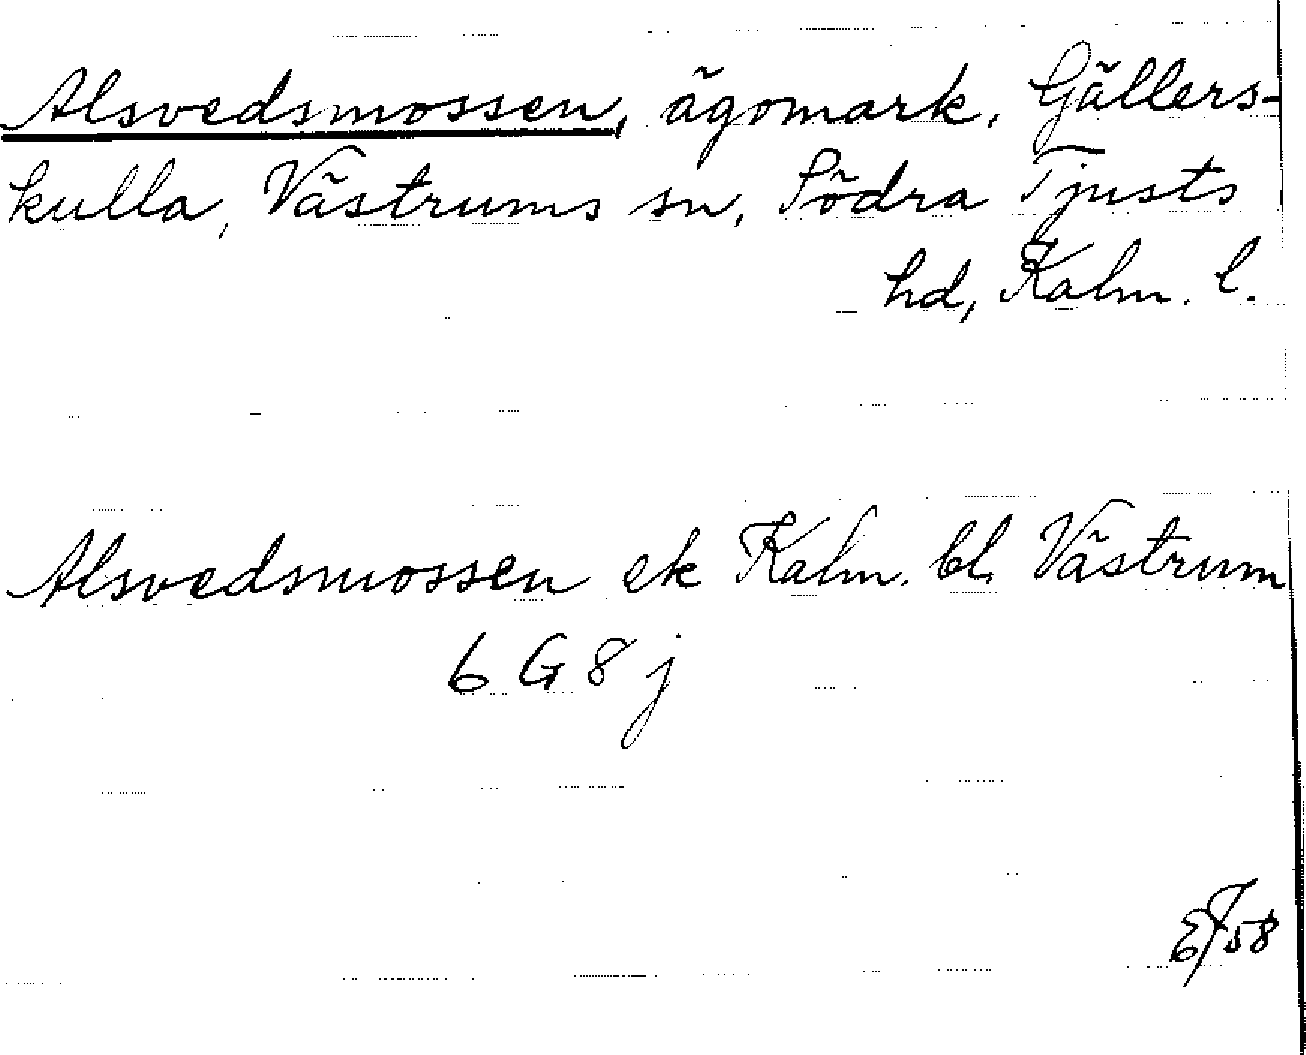 Alsvedsmossen, ägomark, Gällers-
kulla, Västrums sn, Södra Tjusts
hd, Kalm. l.
Alsvedsmossen ek Kalm. bl. Västrum
6 G 8 j